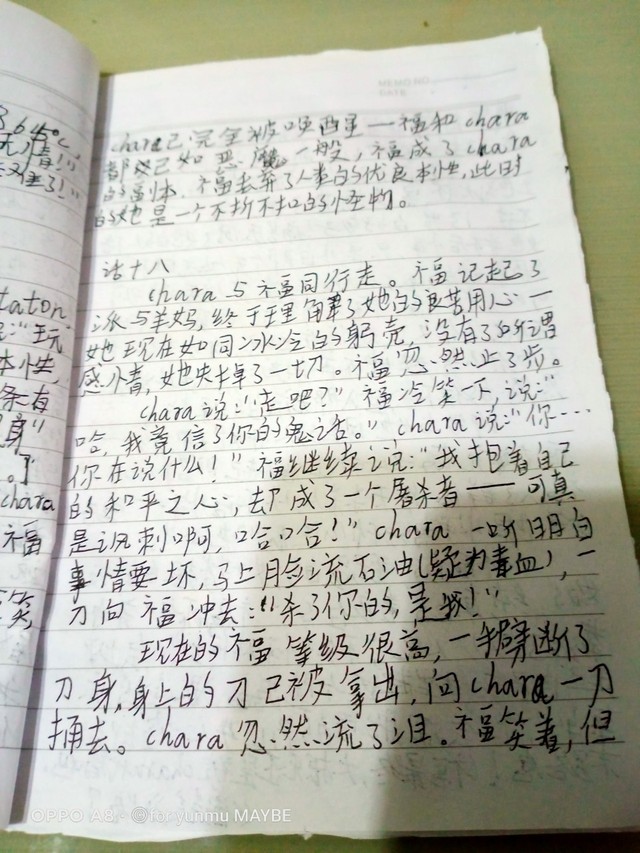 364°C
无情！”
MEMO NO.
DATE
chara已完全被唤醒—福和chara
都已如恶魔一般，福成了chara
的副体，福丢弃了人类的优良本性，此时
的她是一个不折不扣的怪物。
话十八
chara与福同行走。福记起了
派与羊妈，终于理解了她的良苦用心—
她现在如同冰冷的躯壳，没有了所谓
感情，她失掉了一切。福忽然止了步。
chara说：“走吧？”福冷笑一下，说：“
哈，我竟信了你的鬼话。”chara说：“你…
你在说什么！”福继续说：“我抱着自己
的和平之心，却成了一个屠杀者——可真
是讽刺啊，哈哈！”chara一听明白
事情要坏，马上脸流石油（疑为毒血），一
刀向福冲去：“杀了你的，是我！”
现在的福等级很高，一手劈断了
刀身，身上的刀已被拿出，向chara一刀
捅去。chara忽然流了泪。福笑着，但
taton
：“玩
本性，
条有
身”
。]
chara
福
笑，
OPPO A8· ©foryunmu MAYBE